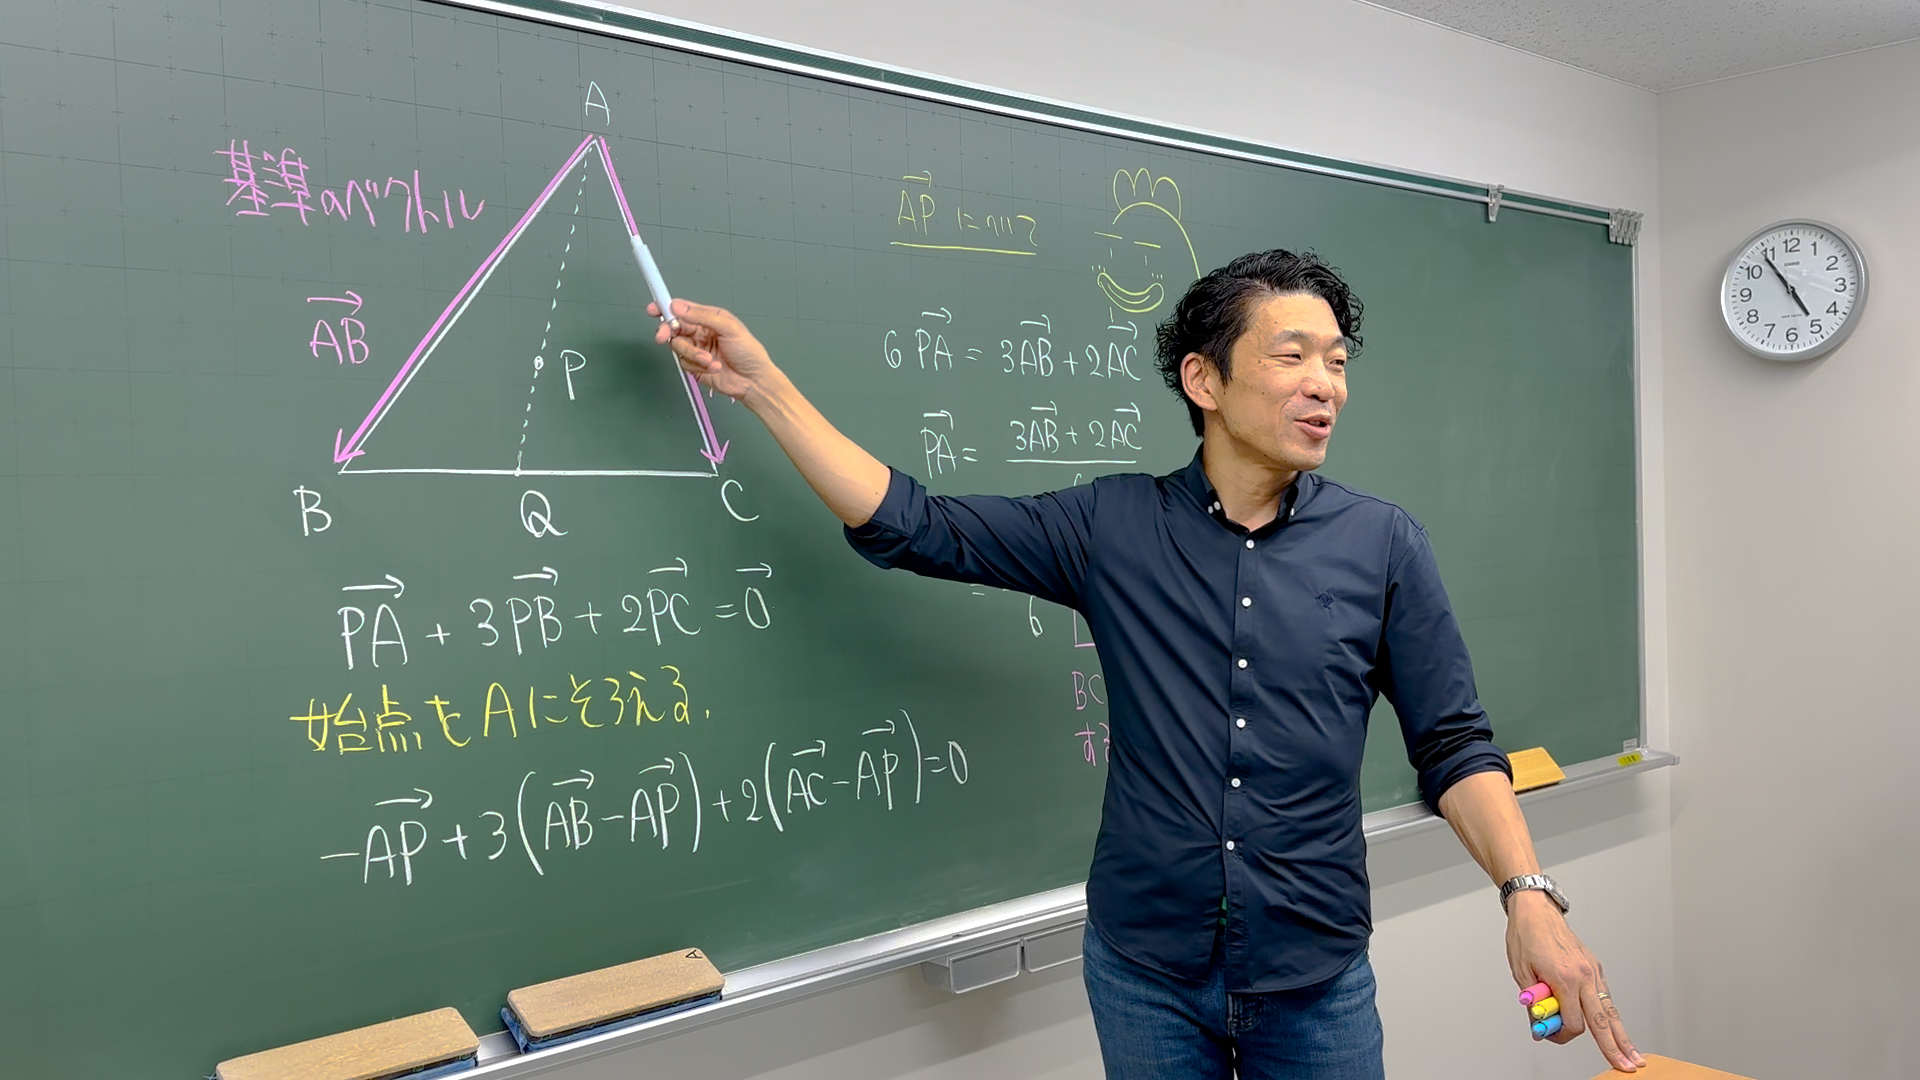 A
基準のベクトル
AB→
P
B
Q
C
PA→ + 3PB→ + 2PC→ = 0→
始点をAにそろえる.
-AP→ + 3(AB→ - AP→) + 2(AC→ - AP→) = 0
AP→について
6PA→ = 3AB→ + 2AC→
PA→ = 3AB→ + 2AC→
=
6
BC
する
12
1
2
3
4
5
6
7
8
9
10
11
A